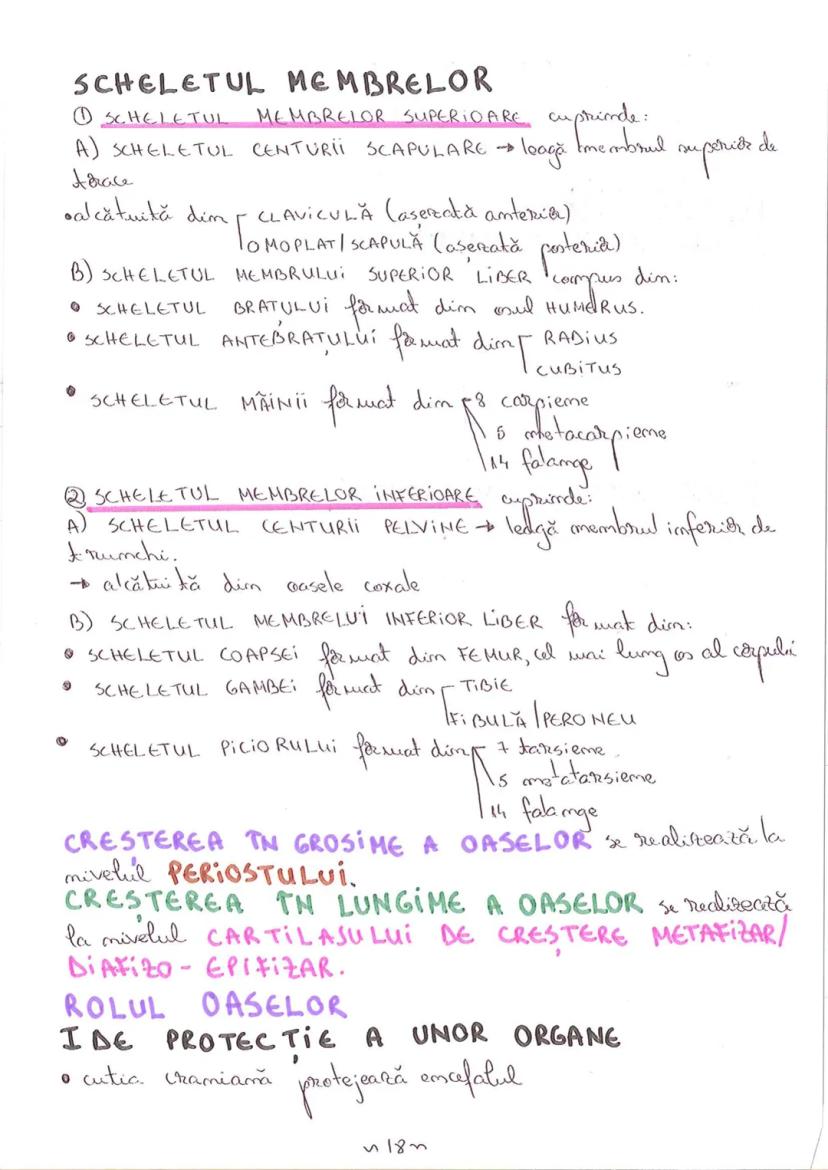 SCHELETUL MEMBRELOR
① SCHELETUL MEMBRELOR SUPERIOARE cuprinde:
A) SCHELETUL CENTURII SCAPULARE → leagă membrul superior de
torace
•alcătuită din CLAVICULĂ (așezată anterior)
OMOPLAT/SCAPULĂ (așezată posterior)
B) SCHELETUL MEMBRULUI SUPERIOR LIBER compus din:
• SCHELETUL BRAȚULUI format din osul HUMERUS.
• SCHELETUL ANTEBRAȚULUI format din RADIUS
CUBITUS
• SCHELETUL MÂINII format din 8 carpiene
5 metacarpiene
14 falange
② SCHELETUL MEMBRELOR INFERIOARE cuprinde:
A) SCHELETUL CENTURII PELVINE → leagă membrul inferior de
trunchi.
→ alcătuită din oasele coxale
B) SCHELETUL MEMBRELUI INFERIOR LIBER format din:
• SCHELETUL COAPSEI format din FEMUR, cel mai lung os al corpului
• SCHELETUL GAMBEI format din TIBIE
FIBULĂ/PERONEU
• SCHELETUL PICIORULUI format din 7 tarsiene
5 metatarsiene
14 falange
CREȘTEREA ÎN GROSIME A OASELOR se realizează la
nivelul PERIOSTULUI.
CREȘTEREA ÎN LUNGIME A OASELOR se realizează
la nivelul CARTILASULUI DE CREȘTERE METAFIZAR/
DIAFIZO-EPIFIZAR.
ROLUL OASELOR
I DE PROTECȚIE A UNOR ORGANE
• cutia craniană protejează encefalul
~18~